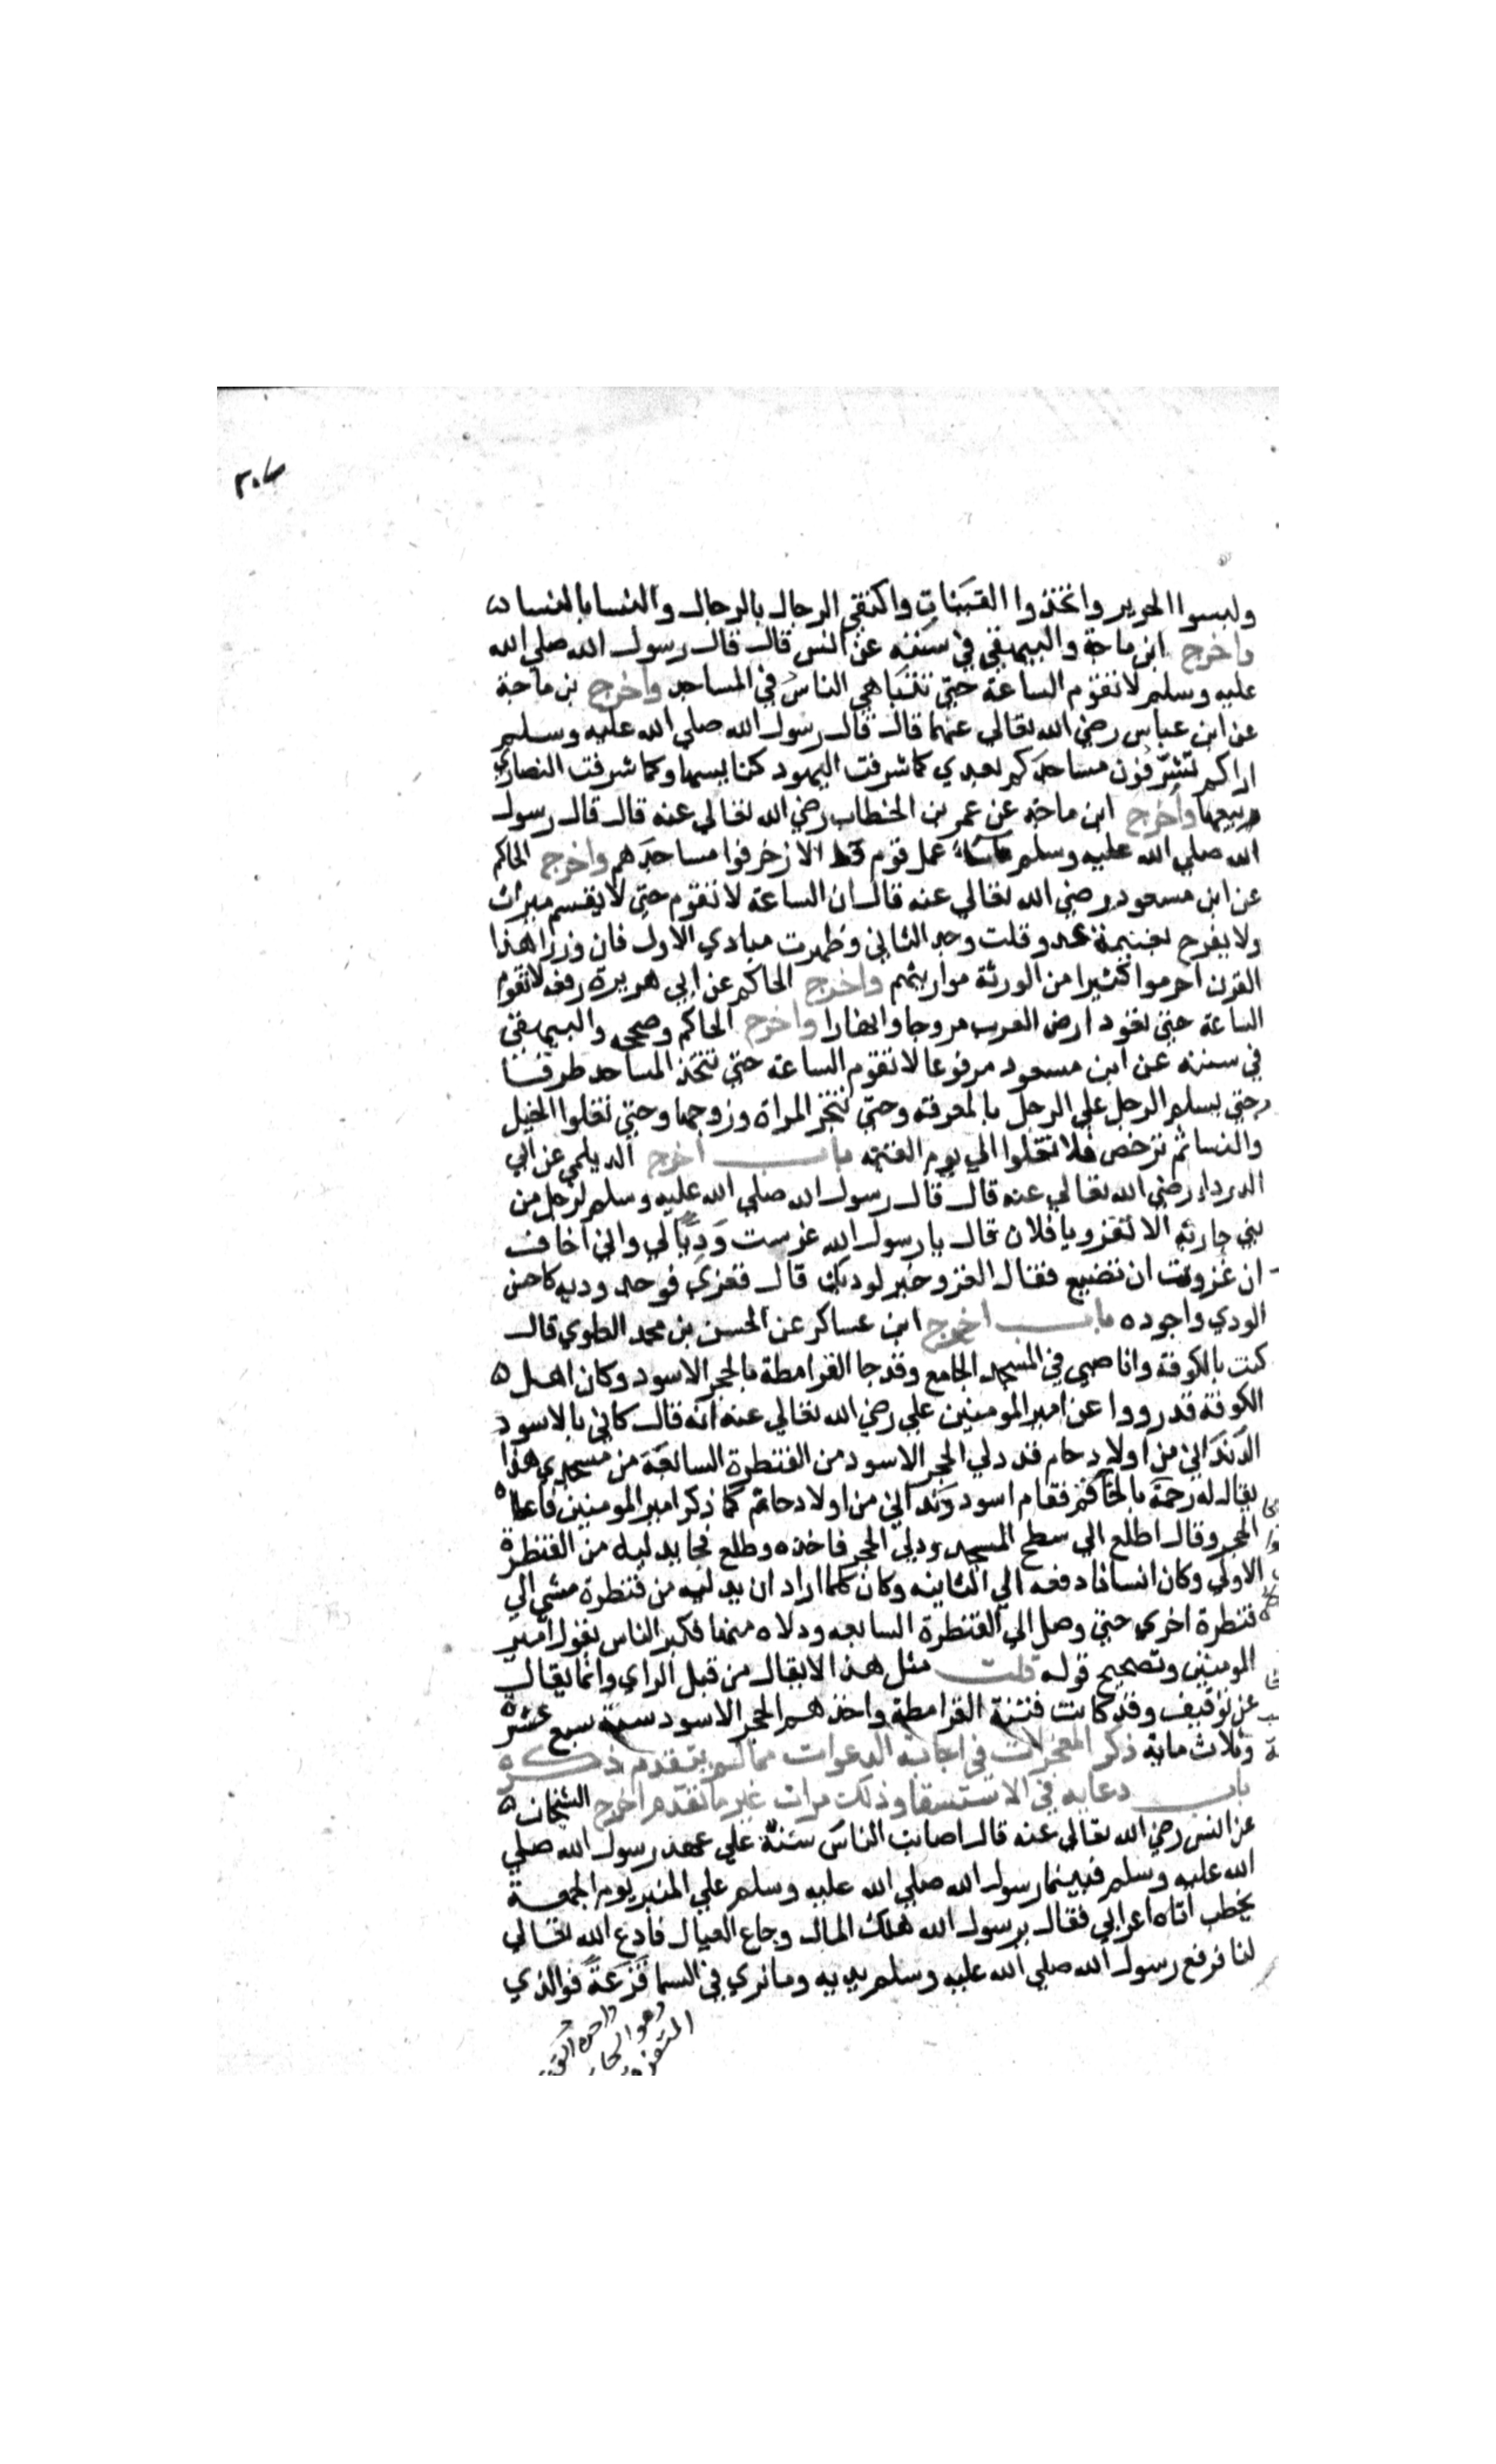 ٣٠٦
ولبسوا الحرير واتخذوا القينات واكتفي الرجال بالرجال والنسا بالنسا
واخرج ابن ماجة والبيهقي في سننه عن انس قال قال رسول الله صلي الله
عليه وسلم لا تقوم الساعة حتي تتباهي الناس في المساجد واخرج بن ماجة
عن ابن عباس رضي الله تعالي عنهما قال قال رسول الله صلي الله عليه وسلم
اراكم تشرفون مساجدكم بعدي كما شرفت اليهود كنايسها وكما شرفت النصاري
بيعها واخرج ابن ماجة عن عمر بن الخطاب رضي الله تعالي عنه قال قال رسول
الله صلي الله عليه وسلم ما سا عمل قوم قط الا زخرفوا مساجدهم واخرج الحاكم
عن ابن مسعود رضي الله تعالي عنه قال ان الساعة لا تقوم حتي لا يقسم ميراث
ولا يفرح بغنيمة عدو قلت وجد الثاني وظهرت مبادي الاول فان وزرا هذا
القرن احرموا كثيرا من الورثة مواريثهم واخرج الحاكم عن ابي هريرة رفعه لا تقوم
الساعة حتي تعود ارض العرب مروجا وانهارا واخرج الحاكم وصححه والبيهقي
في سننه عن ابن مسعود مرفوعا لا تقوم الساعة حتي تتخذ المساجد طرقا
وحتي يسلم الرجل علي الرجل بالمعرفة وحتي تتجر المراة وزوجها وحتي تغلوا الخيل
والنسا ثم ترخص فلا تغلوا الي يوم القيمة باب اخرج الديلمي عن ابي
الدرداء رضي الله تعالي عنه قال قال رسول الله صلي الله عليه وسلم لرجل من
بني حارثه الا تغزو يا فلان قال يا رسول الله غرست وديا لي واني اخاف
ان غزوت ان تضيع فقال الغزو خير لوديك قال فغزي فوجد وديه كاحسن
الودي واجوده باب اخرج ابن عساكر عن الحسن بن محمد العلوي قال
كنت بالكوفة وانا صبي في المسجد الجامع وقد جا القرامطة بالحجر الاسود وكان اهل
الكوفة قد رووا عن امير المومنين علي رضي الله تعالي عنه انه قال كاني بالاسود
الدنداني من اولاد حام قد دلي الحجر الاسود من القنطرة السابعة من مسجدي هذا
يقال له رحمة فقام اسود دنداني من اولاد حام كما ذكر امير المومنين
الحجر وقال اطلع الي سطح المسجد ودلي الحجر فاخذه وطلع فجا يدليه من القنطرة
الاولي وكان انسانا دفعه الي الثانيه وكان كلما اراد ان يدليه من قنطرة مشي الي
قنطرة اخري حتي وصل الي القنطرة السابعه ودلاه منها فكبر الناس بقول امير
المومنين وتصحيح قوله قلت مثل هذا لا يقال من قبل الراي وانما يقال
عن توقيف وقد كانت فتنة القرامطة واخذهم الحجر الاسود سنة سبع عشرة
وثلاث ماية ذكر المعجزات في اجابة الدعوات مما لم يتقدم ذكره
باب دعايه في الاستسقا وذلك مرات غير ما تقدم اخرج الشيخان
عن انس رضي الله تعالي عنه قال اصابت الناس سنة علي عهد رسول الله صلي
الله عليه وسلم فبينما رسول الله صلي الله عليه وسلم علي المنبر يوم الجمعة
يخطب اتاه اعرابي فقال يرسول الله هلك المال وجاع العيال فادع الله تعالي
لنا فرفع رسول الله صلي الله عليه وسلم يديه وما نري في السما قزعة فوالذي